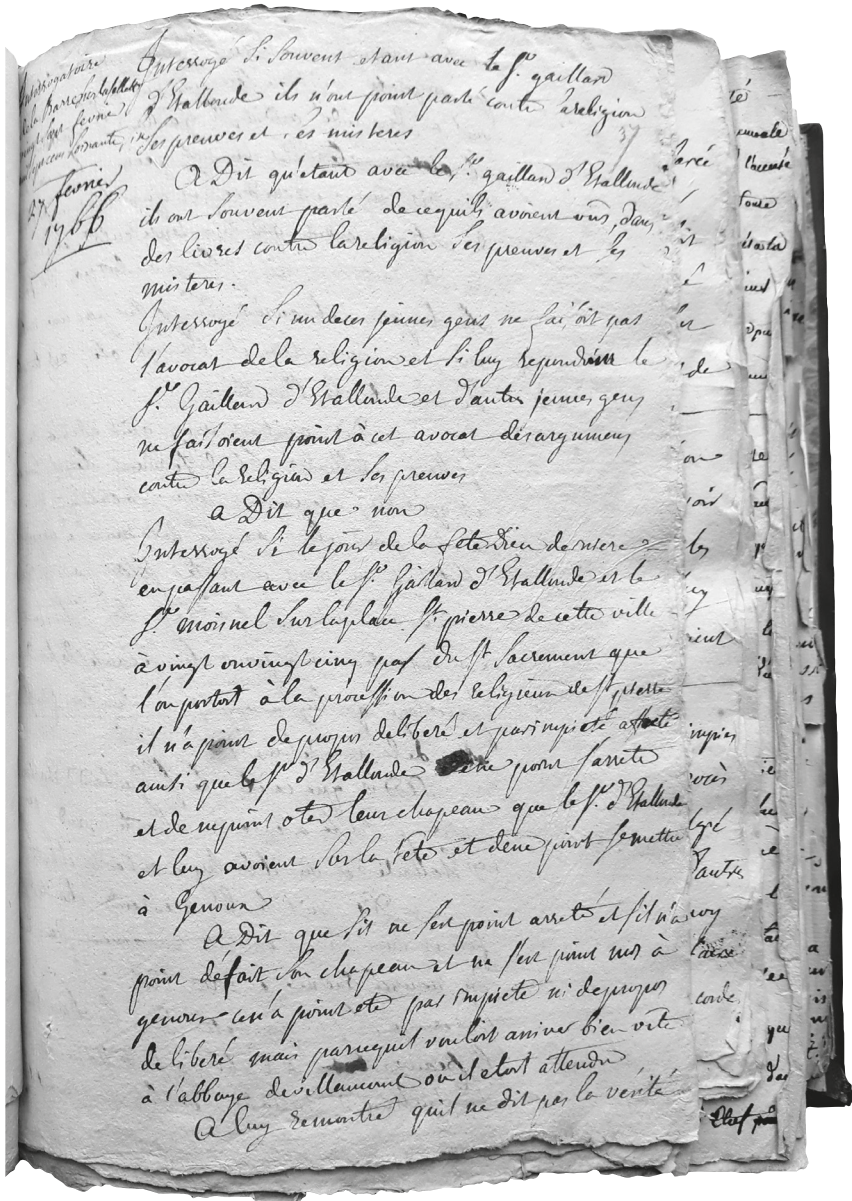 Interrogatoire
de la Barre sur la sellette
vingt sept fevrier
mil sept cent soixante six
27 fevrier
1766
Interrogé si souvent etant avec le Sr. gaillard
d'Etallonde ils n'ont point parlé contre la religion
ses preuves et ses misteres
37
a Dit qu'étant avec le Sr. gaillard d'Etallonde
ils ont souvent parlé de ce quils avoient vus dans
des livres contre la religion ses preuves et ses
misteres.
Interrogé si un de ces jeunes gens ne faisoit pas
l'avocat de la religion et si luy repondant le
Sr. Gaillard d'Etallonde et d'autres jeunes gens
ne faisoient point à cet avocat des argumens
contre la religion et ses preuves
a Dit que non
Interrogé si le jour de la fete dieu derniere
en passant avec le Sr. Gaillard d'Etallonde et le
Sr. moisnel sur la place St. pierre de cette ville
à vingt ou vingt cinq pas du St Sacrement que
l'on portoit à la procession des religieux de St pierre
il n'a point de propos deliberé et par impieté affecté
ainsi que le Sr d'Etallonde de ne point s'arreter
et de ne point oter leur chapeau que le Sr. d'Etallonde
et luy avoient sur la tete et de ne point se mettre
à Genoux
a Dit que s'il ne s'est point arreté et s'il n'a
point défait son chapeau et ne s'est point mis à
genoux ce n'a point eté par impieté ni de propos
deliberé mais parcequil vouloit arriver bien vite
à l'abbaye de villancourt ou il etoit attendu
a luy remontré qu'il ne dit pas la vérité